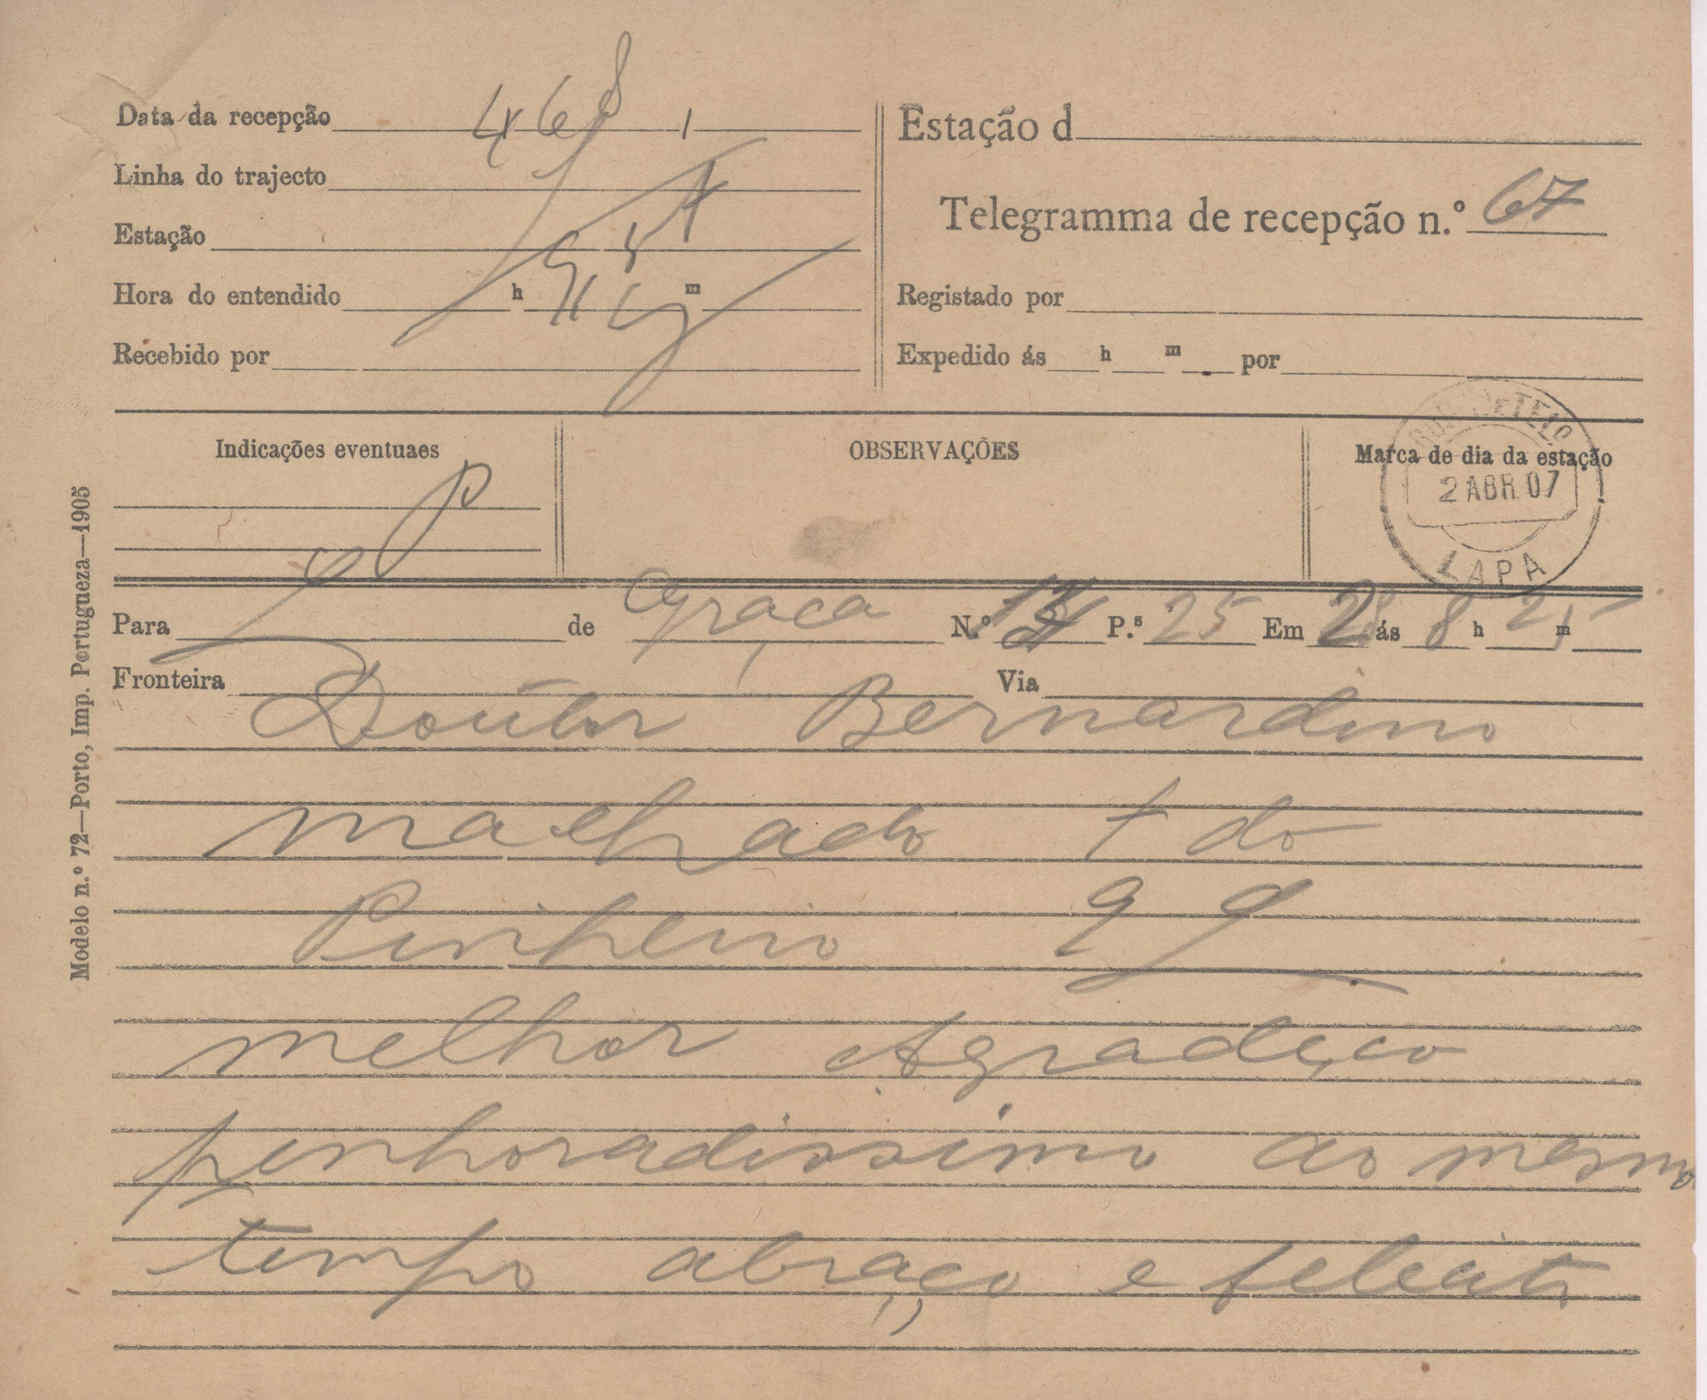 Data da recepção 468 1
Linha do trajecto
Estação
Hora do entendido h m
Recebido por
Estação d
Telegramma de recepção n.º 67
Registado por
Expedido ás h m por
Indicações eventuaes
OBSERVAÇÕES
Marca de dia da estação
2 ABR. 07
LAPA
Modelo n.º 72—Porto, Imp. Portugueza—1905
Para de Graça N.º P.s 25 Em 2 ás 8 h m
Fronteira Via
Doutor Bernardino
machado do
Pinheiro
melhor Agradeço
penhoradissimo ao mesmo
tempo abraço e felicito